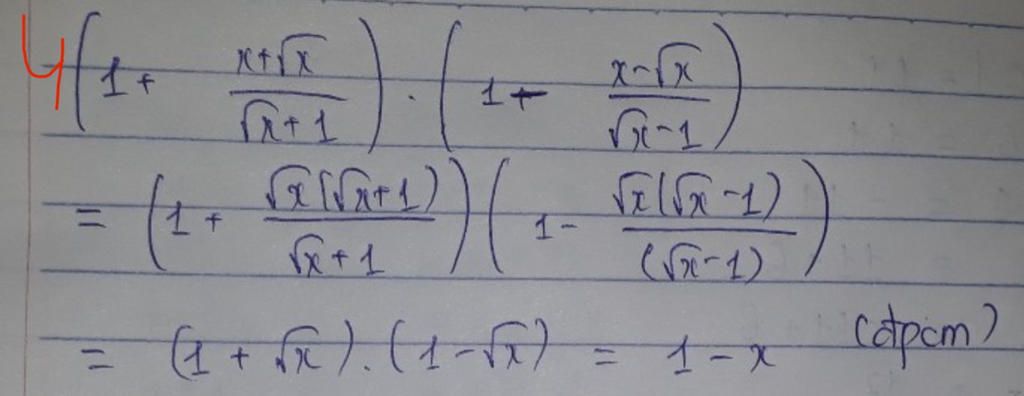 4 (1 + (x+√x)/(√x+1)) . (1 - (x-√x)/(√x-1))
= (1 + √x(√x+1)/(√x+1)) (1 - √x(√x-1)/(√x-1))
= (1 + √x).(1-√x) = 1 - x (đpcm)